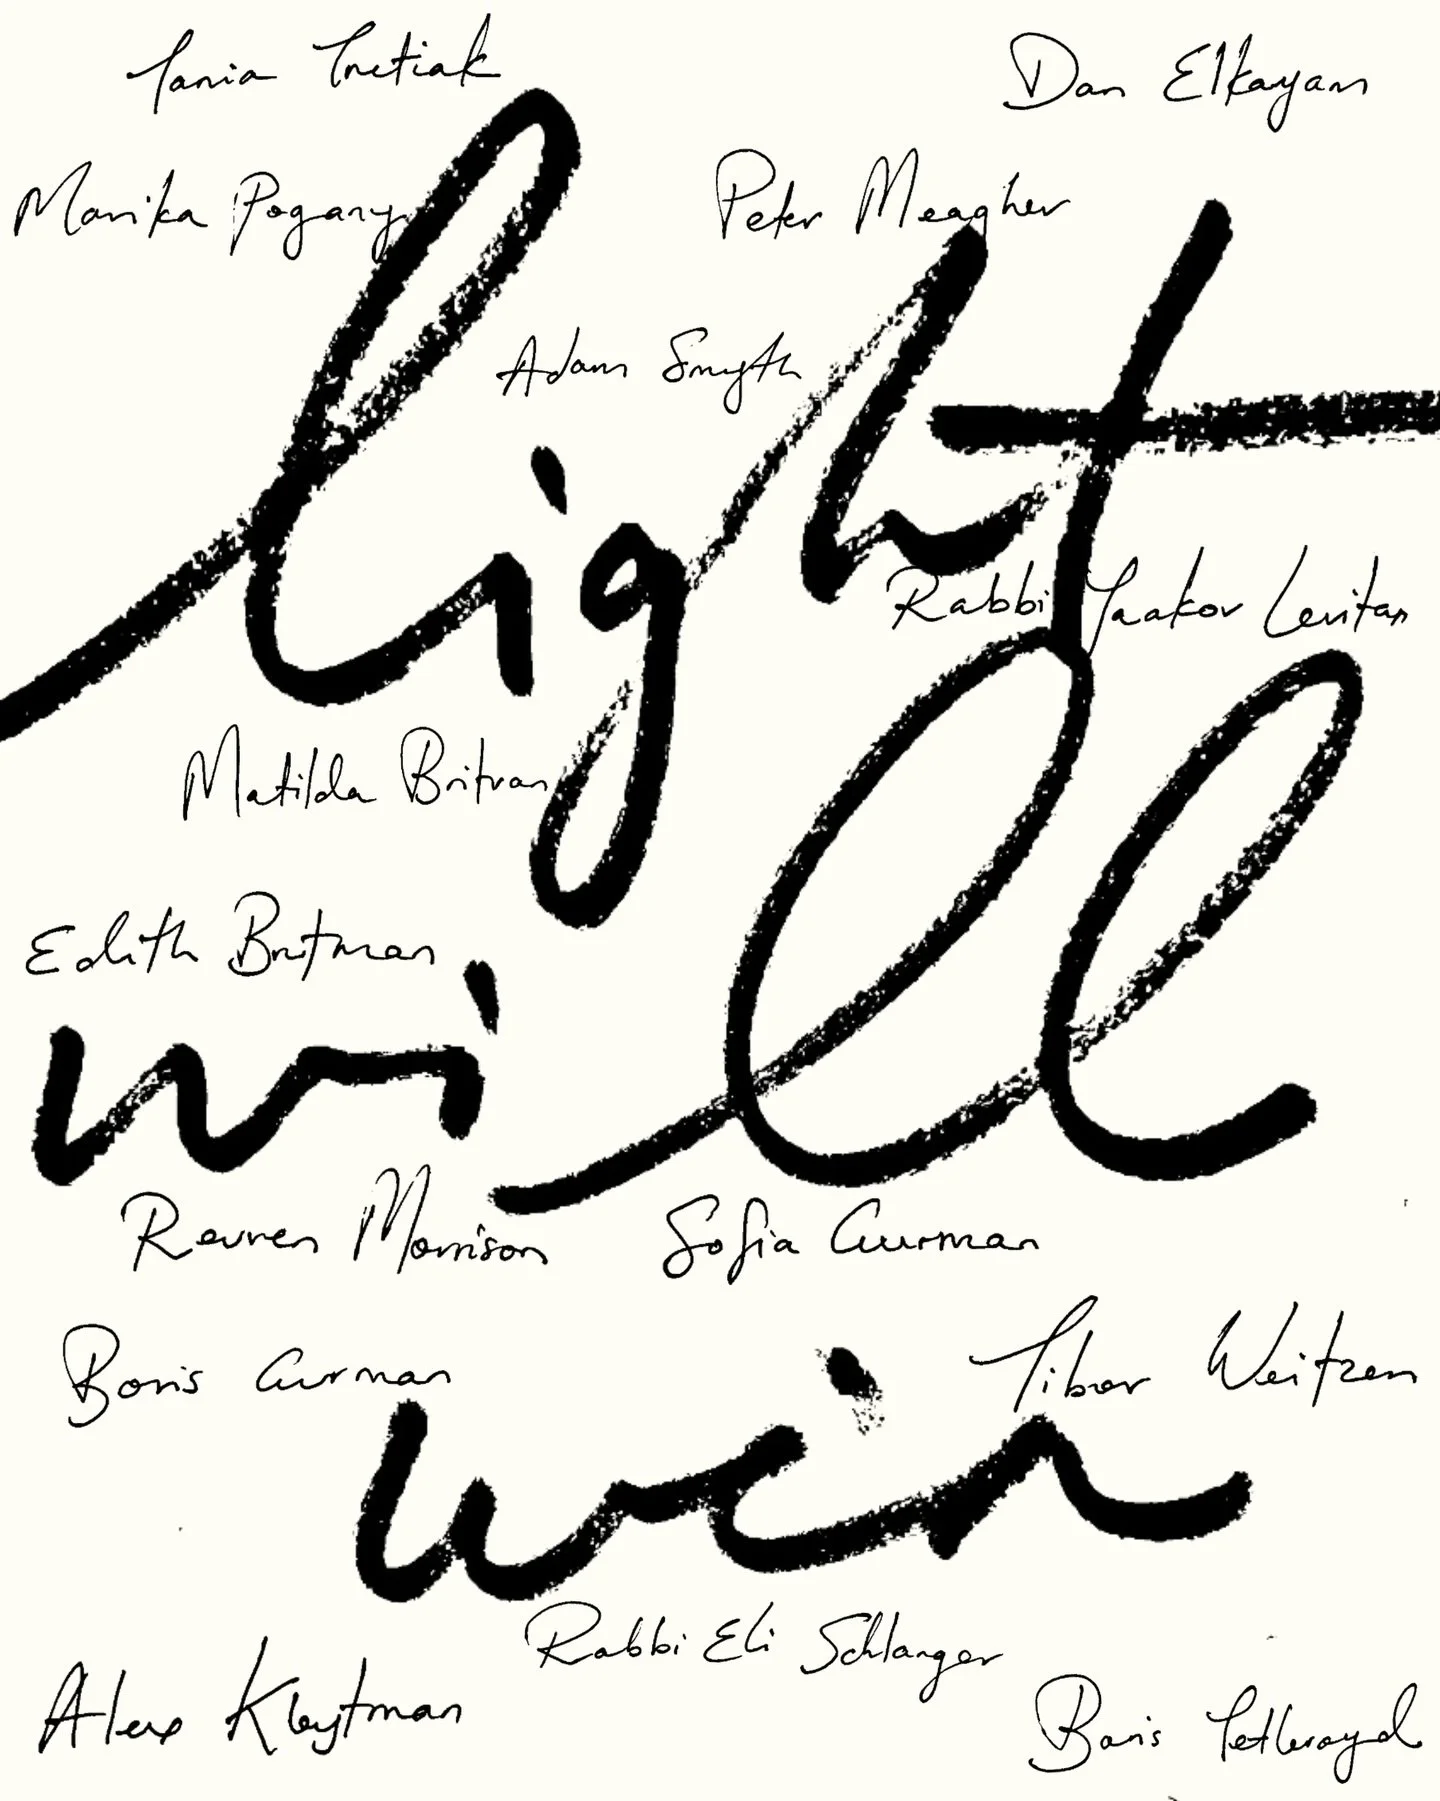 Tania Tretiak
Dan Elkayam
Marika Pogany
Peter Meagher
Adam Smyth
light
Rabbi Yaakov Levitan
Matilda Britvan
Edith Brutman
will
Reuven Morrison
Sofia Gurman
Boris Gurman
Tibor Weitzen
win
Rabbi Eli Schlanger
Alex Kleytman
Boris Tetleroyd